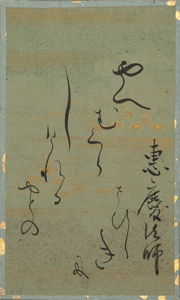 惠慶法師
やへ
むくら
しけれる
やとの
さひしき
に